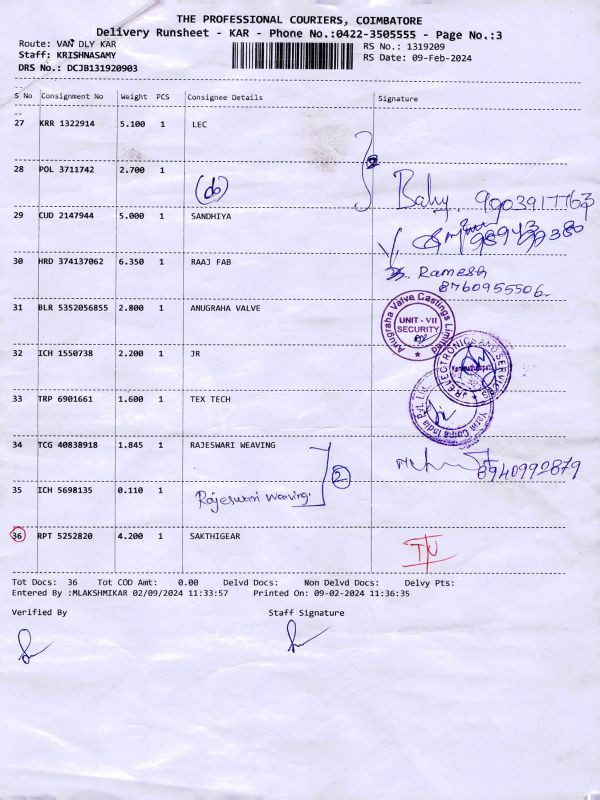 THE PROFESSIONAL COURIERS, COIMBATORE
Delivery Runsheet - KAR - Phone No.:0422-3505555 - Page No.:3
Route: VAN DLY KAR
RS No.: 1319209
Staff: KRISHNASAMY
RS Date: 09-Feb-2024
DRS No.: DCJB131920903
S No Consignment No Weight PCS Consignee Details Signature
27 KRR 1322914 5.100 1 LEC
2
28 POL 3711742 2.700 1
(do)
Baby. 9903917763
29 CUD 2147944 5.000 1 SANDHIYA
30 HRD 374137062 6.350 1 RAAJ FAB
Ramesh
8760955506
31 BLR 5352056855 2.800 1 ANUGRAHA VALVE
Anugraha Valve Castings Limited
UNIT - VII
SECURITY
32 ICH 1550738 2.200 1 JR
JR ELECTRONICS AND SERVICES
33 TRP 6901661 1.600 1 TEX TECH
India Pvt. Ltd.
34 TCG 40838918 1.845 1 RAJESWARI WEAVING
2
8940992879
35 ICH 5698135 0.110 1
Rajeswari Weaving.
36 RPT 5252820 4.200 1 SAKTHIGEAR
Tot Docs: 36 Tot COD Amt: 0.00 Delvd Docs: Non Delvd Docs: Delvy Pts:
Entered By :MLAKSHMIKAR 02/09/2024 11:33:57 Printed On: 09-02-2024 11:36:35
Verified By Staff Signature